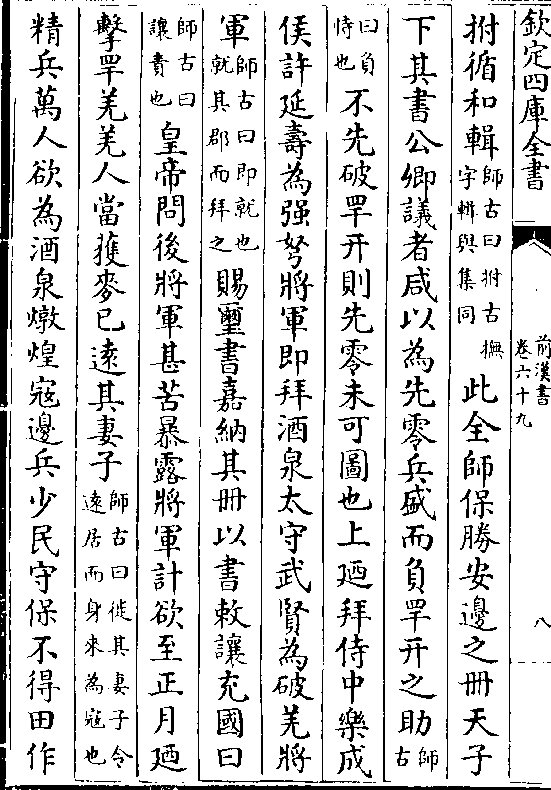 欽定四庫全書
前漢書
卷六十九
八
拊循和輯師古曰拊古撫字輯與集同此全師保勝安邊之冊天子
下其書公卿議者咸以為先零兵盛而負䍐幵之助師古
曰負恃也不先破䍐幵則先零未可圖也上廼拜侍中樂成
侯許延壽為强弩將軍即拜酒泉太守武賢為破羌將
軍師古曰即就也就其郡而拜之賜璽書嘉納其冊以書敕讓充國曰
師古曰讓責也皇帝問後將軍甚苦暴露將軍計欲至正月廼
擊䍐羌羌人當獲麥已逺其妻子師古曰徙其妻子令逺居而身來為寇也
精兵萬人欲為酒泉燉煌寇邊兵少民守保不得田作